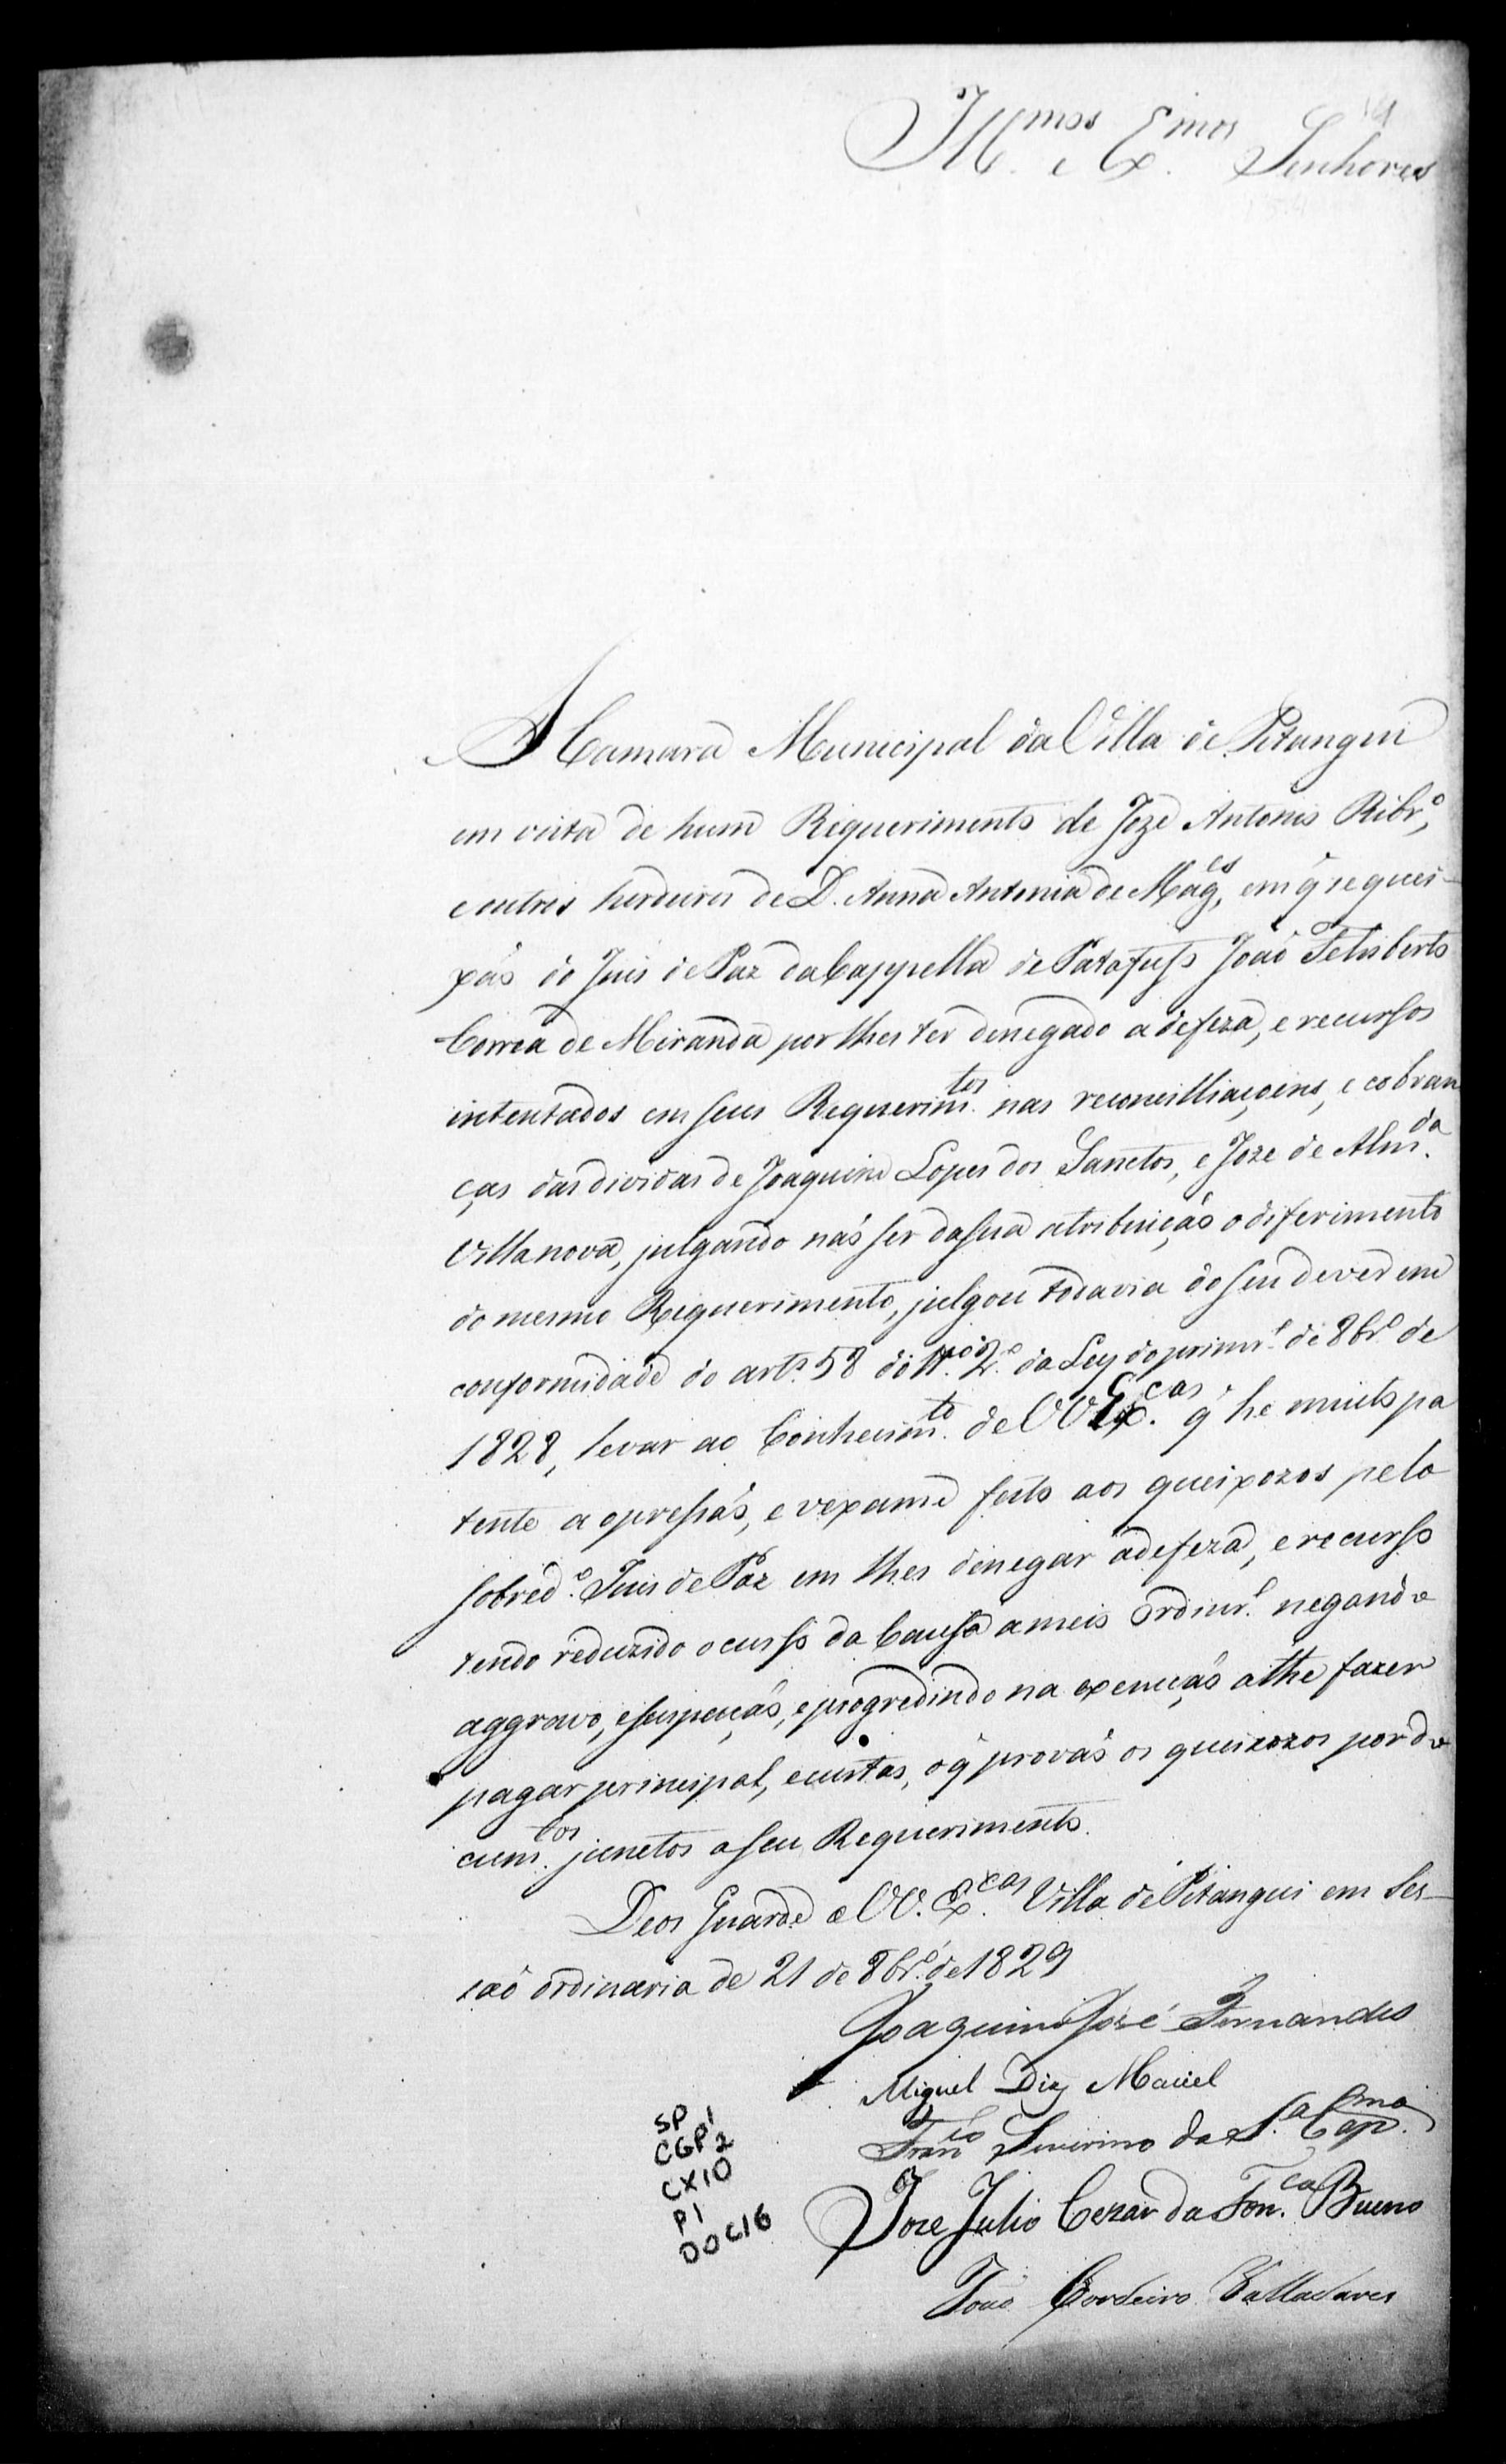 Illmos e Exmos Senhores
A Camara Municipal da Villa de Pitangui
em vista de hum Requerimento de Joze Antonio Ribro,
e outros herdeiros de D. Anna Antonia de Mages, em q̃ se quei-
xáo do Juis de Paz da Cappella de Patafufo Joaõ Felisberto
Correa de Miranda por lhes ter denegado a defeza, e recursos
intentados em seus Requerimtos nas reconcilliaçoens, e cobran
ças das dividas de Joaquim Lopes dos Sanctos, e Joze de Almda
Villanova, julgando náo ser da sua atribuiçáo o diferimento
do mesmo Requerimento, julgou todavia do seu dever em
conformidade do arto 58 do Tto 2o da Ley do primro de 8bro de
1828, levar ao Conhecimto de VV Excas q̃ he muito pa
tente a opressáo, e vexame feito aos queixozos pelo
sobredo Juis de Paz em lhes denegar a defeza, e recurso
tendo reduzido o curso da Causa a meio ordinro negando
aggravo, e suspeiçáo, e progredindo na execuçáo athe fazer
pagar principal, e custas, o q̃ prováo os queixozos por do
cumtos junctos a seu Requerimento.
Deos Guarde a VV. Excas Villa de Pitangui em Ses-
saõ ordinaria de 21 de 8bro de 1829
Joaquim José Fernandes
Miguel Dias Maciel
Franco Severino da Sa
Joze Julio Cezar da Fonca Bueno
Joao Cordeiro Valladares
SP
CGP1
2
CX10
P1
DOC16